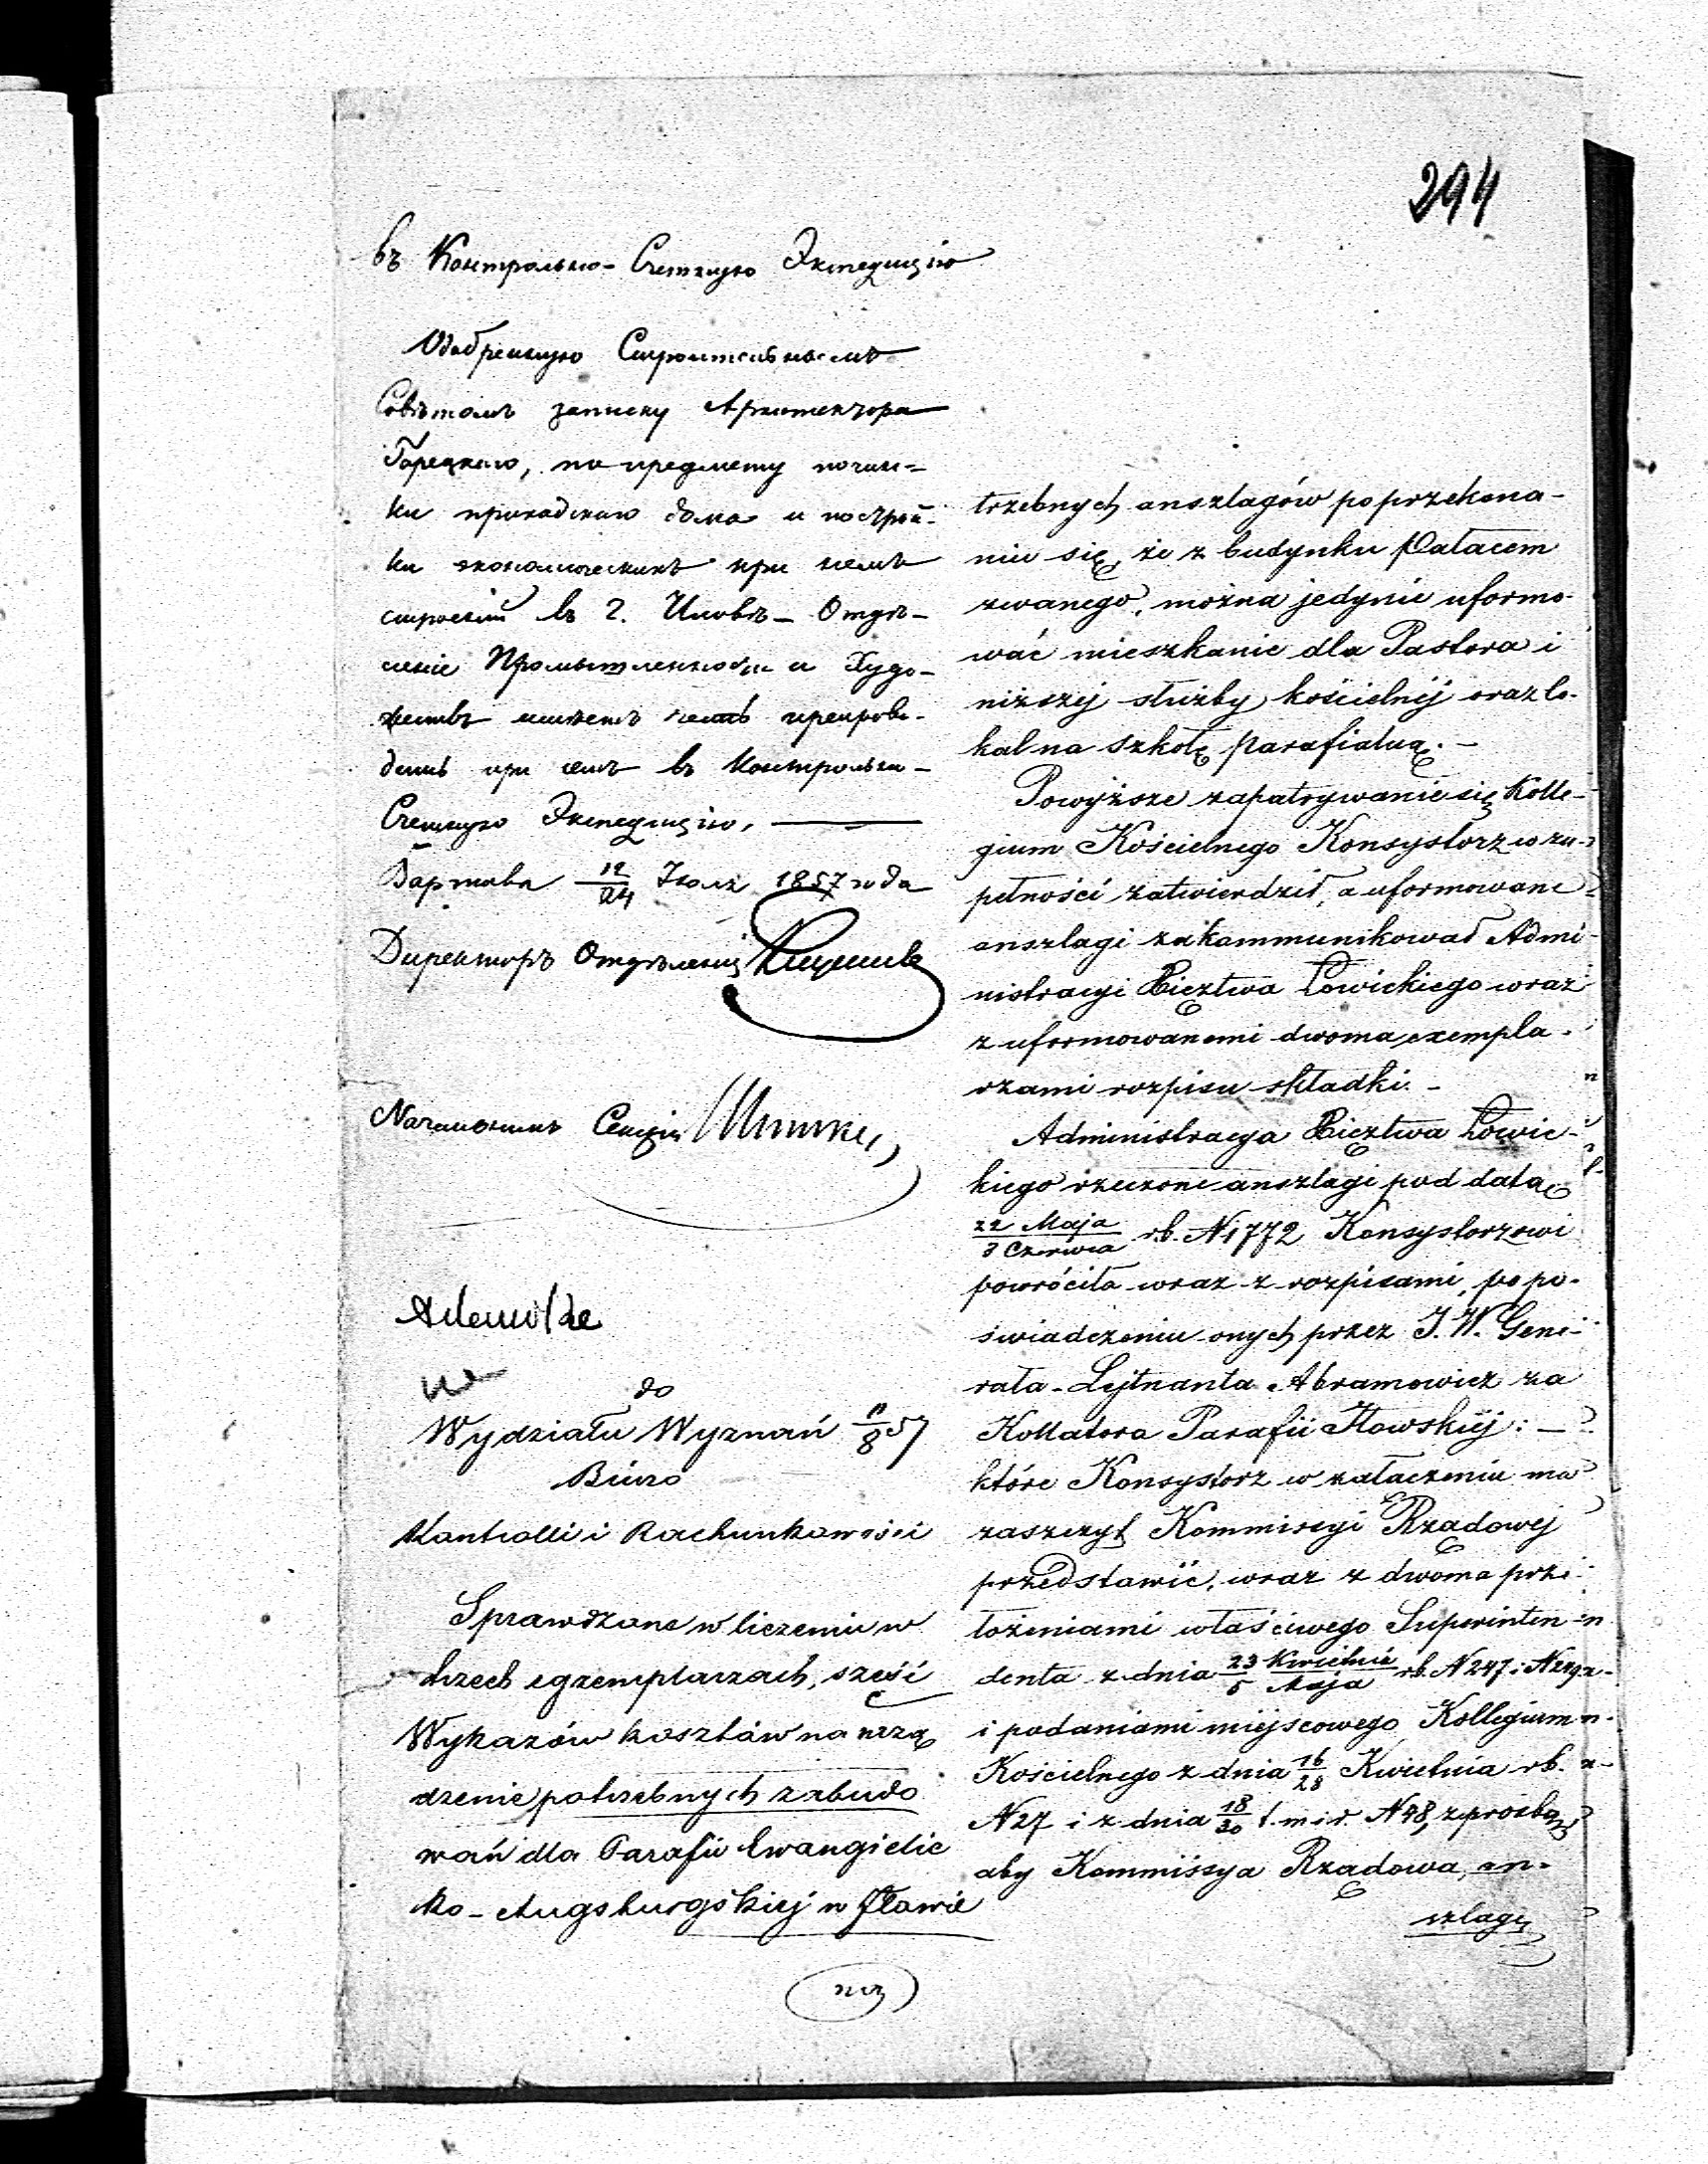 294
въ Контрольно-Счетную Экспедицію
Одобренную Строительнымъ
Совѣтомъ записку Архитектора
Горецкаго, по предмету почин-
ки приходскаго дома и построй-
ки экономическихъ при немъ
строеній въ г. Иловѣ – Отдѣ-
леніе Промышленности и Худо-
жествъ имѣетъ честь препрово-
дить при семъ въ Контрольно-
Счетную Экспедицію. —
Варшава 12/24 Іюля 1857 года
Директоръ Отдѣленія
Начальникъ Секціи
do
Wydziału Wyznań 11/8 57
Biuro
Kontrolli i Rachunkowości
Sprawdzone w liczeniu w
trzech egzemplarzach, sześć
Wykazów kosztów na urzą
dzenie potrzebnych zabudo
wań dla Parafii Ewangielic
ko-Augsburgskiej w Iławie
trzebnych anszlagów po przekona-
niu się, że z budynku Pałacem
zwanego, można jedynie uformo-
wać mieszkanie dla Pastora i
niższej służby kościelnéj oraz lo-
kal na szkołę parafialną. –
Powyższe zapatrywanie się Kolle-
gium Kościelnego Konsystorz w zu-
pełności zatwierdził, a uformowane
anszlagi zakommunikował Admi-
nistracyi Xięztwa Łowickiego wraz
z uformowanemi dwoma exempla-
rzami rozpisu składki. –
Administracya Xięztwa Łowic-
kiego rzeczone anszlagi pod datą
22 Maja/3 Czerwca r.b. N 1772 Konsystorzowi
powróciła wraz z rozpisami, po po-
świadczeniu onych przez J.W. Gene-
rała-Lejtnanta Abramowicz za
Kollatora Parafii Iłowskiéj: –
które Konsystorz w załączeniu ma
zaszczyt Kommissyi Rządowej
przedstawić, wraz z dwoma prze-
łożeniami właściwego Superinten-
denta z dnia 23 Kwietnia/5 Maja r.b. N 247 i N
i podaniami miejscowego Kollegium
Kościelnego z dnia 16/28 Kwietnia r.b.
N 27 i z dnia 18/30 t. m. i r. N 48, z prośbą
aby Kommissya Rządowa, an-
szlagi